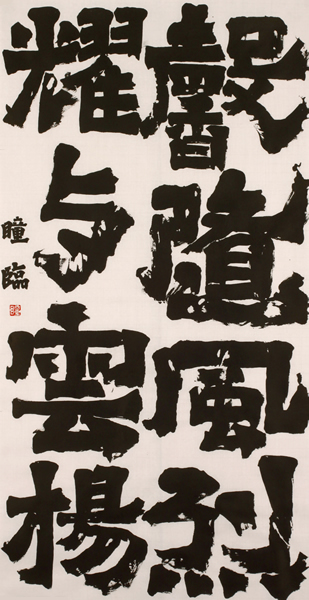 馨隨風烈
耀与雲楊
瞳臨